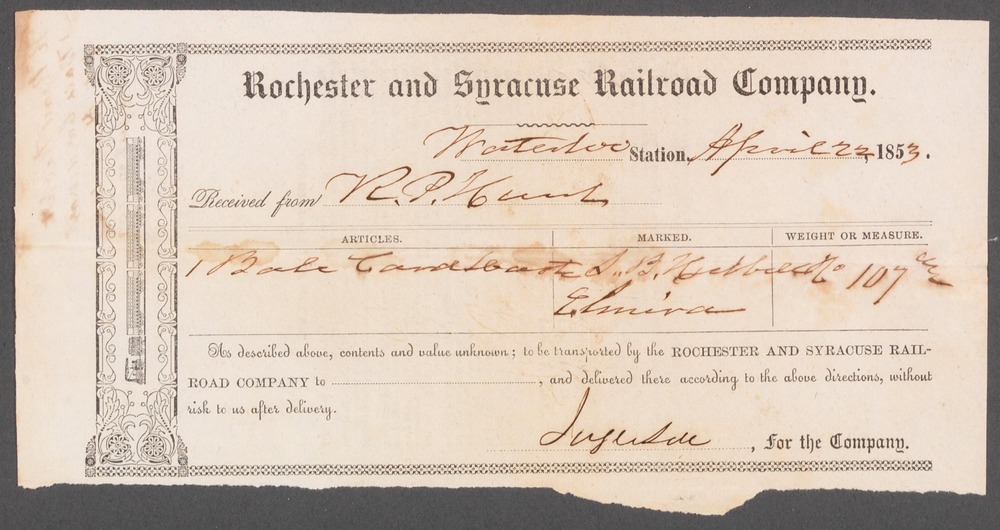 Rochester and Syracuse Railroad Company.
Waterloo Station, April 22, 1853.
Received from R. P. Hunt
ARTICLES. MARKED. WEIGHT OR MEASURE.
1 Bale S. B. 107
Elmira
As described above, contents and value unknown; to be transported by the ROCHESTER AND SYRACUSE RAIL-
ROAD COMPANY to , and delivered there according to the above directions, without
risk to us after delivery.
, For the Company.